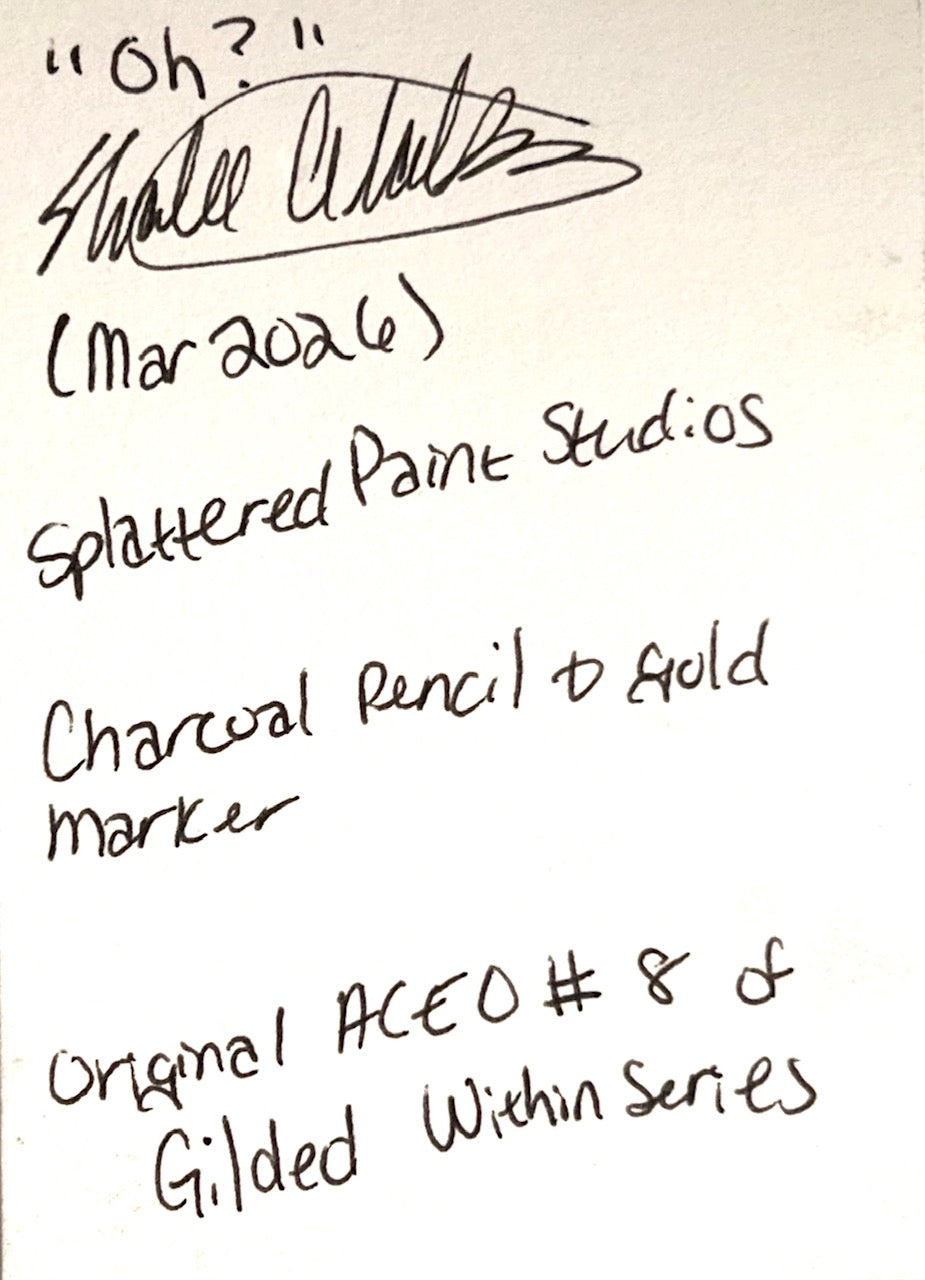 "Oh?"
(Mar 2026)
Splattered Paint Studios
Charcoal Pencil & Gold
Marker
Original ACEO # 8 of
Gilded Within Series